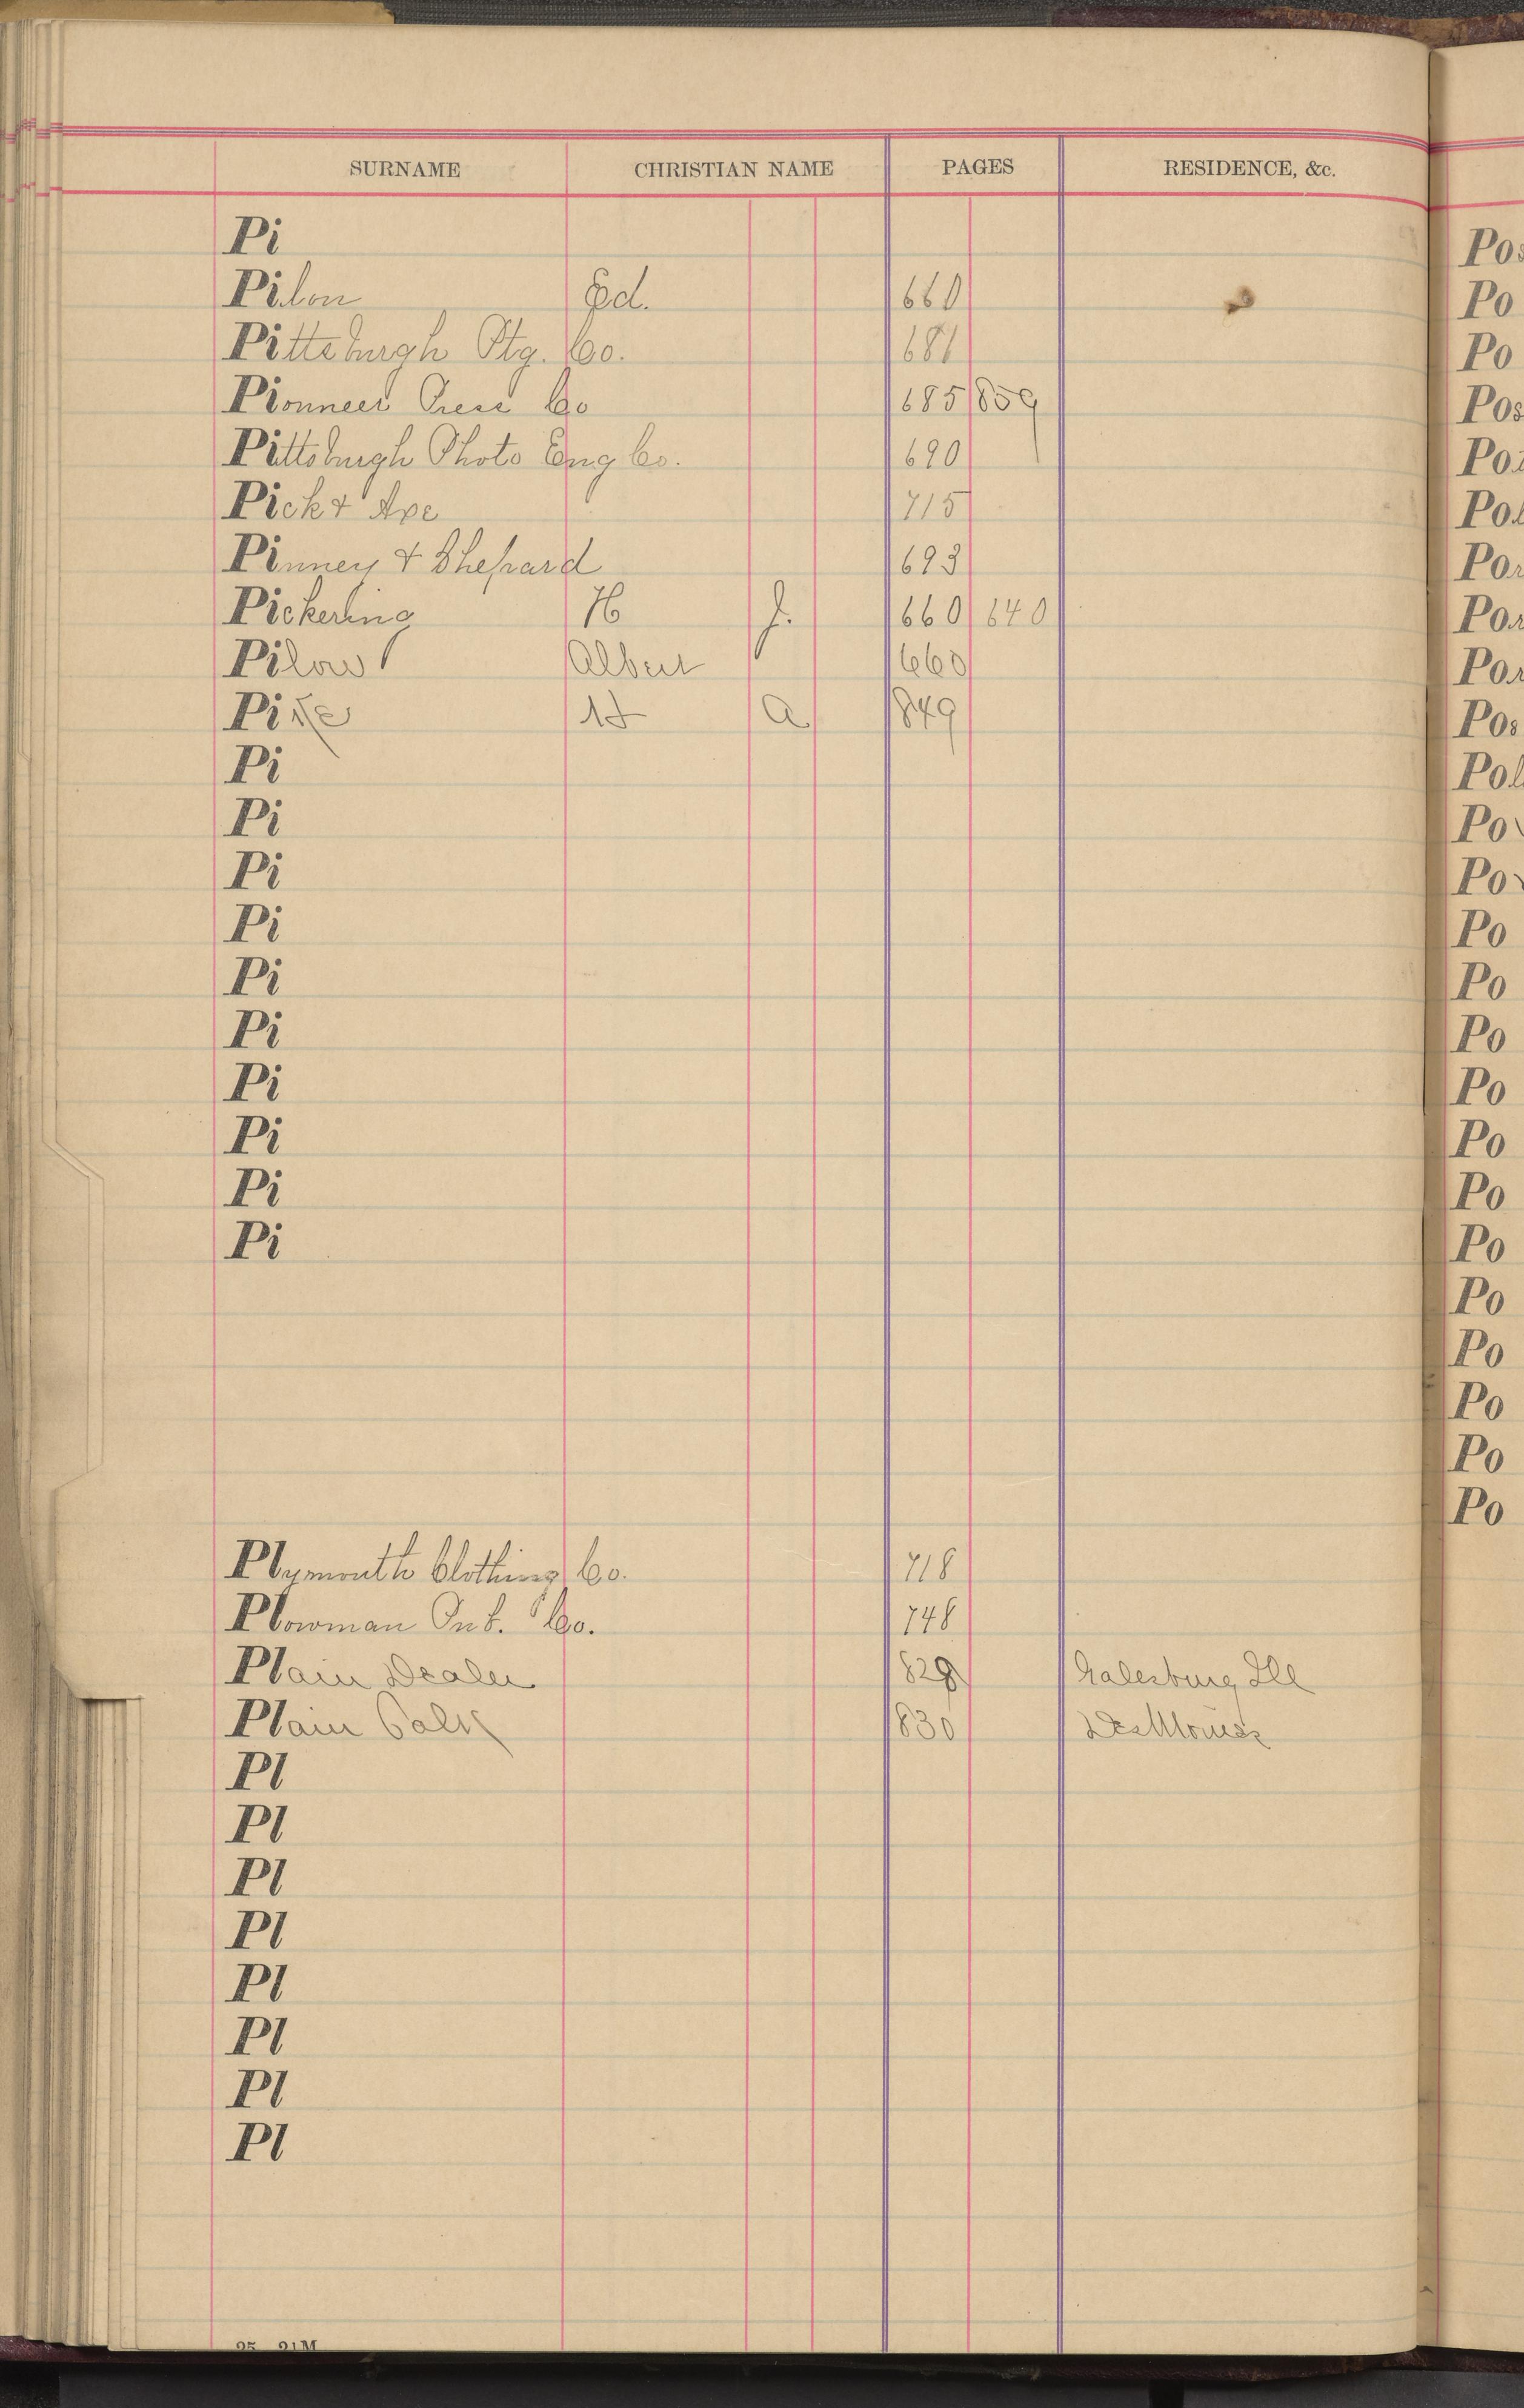 SURNAME CHRISTIAN NAME PAGES RESIDENCE, &c.
Pi
Pilon Ed. 660
Pittsburgh Ptg. Co. 681
Pionneer Press Co 685 859
Pittsburgh Photo Eng Co. 690
Pick & Axe 715
Pinney & Shepard 693
Pickering H J. 660 640
Pilow Albert 660
Pike A 849
Pi
Pi
Pi
Pi
Pi
Pi
Pi
Pi
Pi
Pi
Plymouth Clothing Co. 718
Plowman Pub. Co. 748
Plain Dealer 829 Galesburg Ill
Plain Talk 830 Des Moines
Pl
Pl
Pl
Pl
Pl
Pl
Pl
Pl
25 21M
Pos
Po
Po
Pos
Po
Pol
Po
Po
Po
Pos
Pol
Po
Po
Po
Po
Po
Po
Po
Po
Po
Po
Po
Po
Po
Po